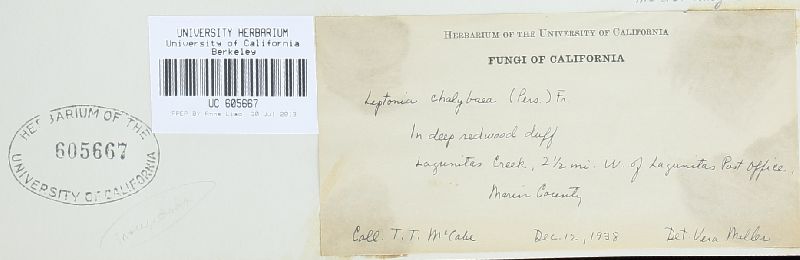 UNIVERSITY HERBARIUM
University of California
Berkeley
UC 605667
PREP BY Anne Liao 10 Jul 2013
HERBARIUM OF THE
605667
UNIVERSITY OF CALIFORNIA
HERBARIUM OF THE UNIVERSITY OF CALIFORNIA
FUNGI OF CALIFORNIA
Leptonia chalybaea (Pers.) Fr
In deep redwood duff
Lagunitas Creek, 2½ mi. W. of Lagunitas Post Office.
Marin County
Coll. T. T. McCabe Dec. 12, 1938 Det Vera Miller